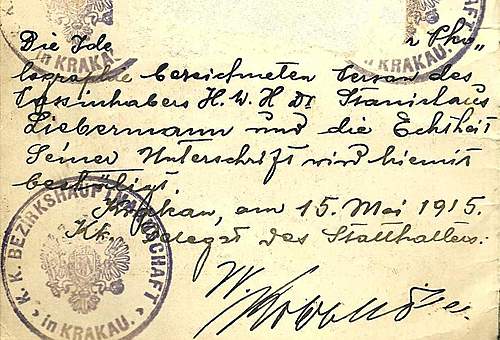 Die Ide r Pho„
tographie bezeichneten Person des
Passinhabers H. W. H Dr Stanislaus
Liebermann und die Echtheit
Seiner Unterschrift wird hiemit
bestätigt.
Krakau, am 15. Mai 1915.
K.k. Delegat des Statthalters:
W.
K. K. BEZIRKSHAUPTMANNSCHAFT
in KRAKAU.
in KRAKAU
in KRAKAU.